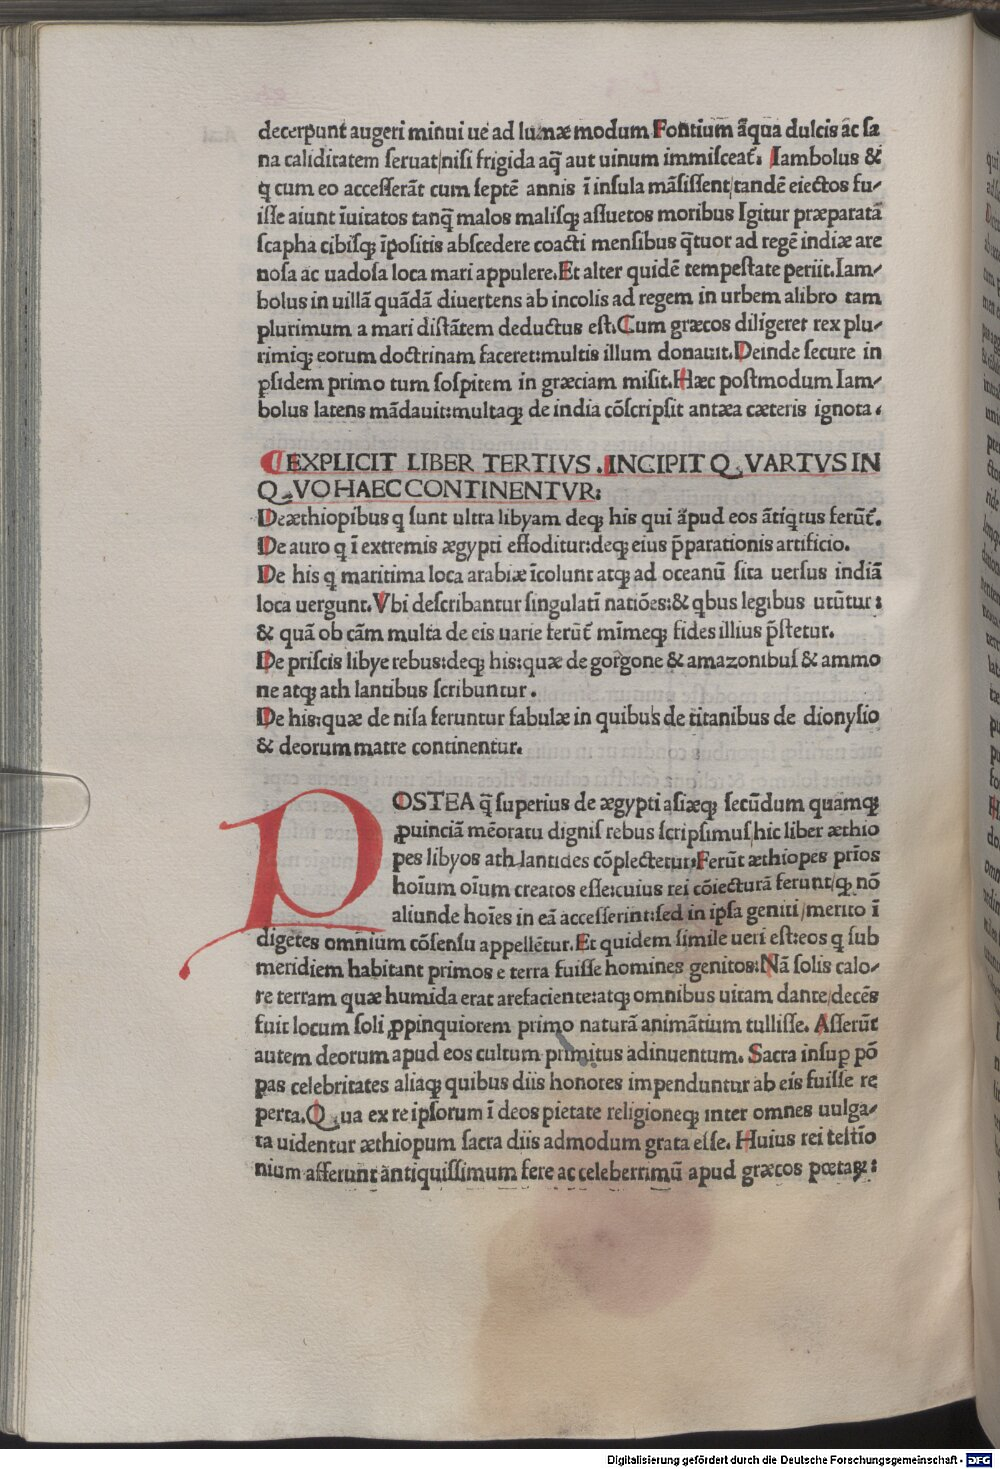 decerpunt augeri minui ue ad lunæ modum Fontium aqua dulcis ac ſa
na caliditatem ſeruat/niſi frigida aq̃ aut uinum immiſceat̃. Iambolus &
q cum eo acceſſerãt cum ſeptẽ annis ĩ inſula mãſiſſent/tandẽ eiectos fu⸗
iſſe aiunt ĩuitatos tanq̃ malos maliſq; aſſuetos moribus Igitur præparatã
ſcapha cibiſq; ĩpoſitis abſcedere coacti menſibus q̃tuor ad regẽ indiæ are
noſa ac uadoſa loca mari appulere.Et alter quidẽ tempeſtate periit.Iam⸗
bolus in uillã quãdã diuertens ab incolis ad regem in urbem alibro tam
plurimum a mari diſtãtem deductus eſt.Cum græcos diligeret rex plu⸗
rimiq; eorum doctrinam faceret:multis illum donauit.Deinde ſecure in
pſidem primo tum ſoſpitem in græciam miſit.Hæc poſtmodum Iam⸗
bolus latens mãdauit:multaq; de india cõſcripſit antæa cæteris ignota.
¶EXPLICIT LIBER TERTIVS.INCIPIT QVARTVS IN
QVO HAEC CONTINENTVR:
De æthiopibus q ſunt ultra libyam deq; his qui apud eos ãtiq̃tus ferũt̃.
De auro q ĩ extremis ægypti effoditur:deq; eius p̃parationis artificio.
De his q maritima loca arabiæ ĩcolunt atq; ad oceanũ ſita uerſus indiã
loca uergunt.Vbi deſcribantur ſingulatĩ natiões:& qbus legibus utũtur:
& quã ob cãm multa de eis uarie ferũt̃ mĩmeq; fides illius p̃ſtetur.
De priſcis libye rebus:deq; his:quæ de gorgone & amazonibuſ & ammo
ne atq; ath lantibus ſcribuntur.
De his:quæ de niſa feruntur fabulæ in quibus de titanibus de dionyſio
& deorum matre continentur.
POSTEA q̃ ſuperius de ægypti aſiæq; ſecũdum quamq;
ꝓuinciã mẽoratu digniſ rebus ſcripſimuſ hic liber æthio
pes libyos ath lantides cõplectetur:Ferũt æthiopes prĩos
hoĩum oĩum creatos eſſe:cuius rei cõiecturã ferunt/q; nõ
aliunde hoĩes in eã acceſſerint:ſed in ipſa geniti/merito ĩ
digetes omnium cõſenſu appellẽtur.Et quidem ſimile ueri eſt:eos q ſub
meridiem habitant primos e terra fuiſſe homines genitos:Nã ſolis calo⸗
re terram quæ humida erat arefaciente:atq; omnibus uitam dante/decẽs
fuit locum ſoli ꝓpinquiorem primo naturã animãtium tulliſſe. Aſſerũt
autem deorum apud eos cultum primitus adinuentum. Sacra inſup põ
pas celebritates aliaq; quibus diis honores impenduntur ab eis fuiſſe re
perta.Qua ex re ipſorum ĩ deos pietate religioneq; inter omnes uulga⸗
ta uidentur æthiopum ſacra diis admodum grata eſſe. Huius rei teſtĩo
nium afferunt antiquiſſimum fere ac celeberrimũ apud græcos poetaꝝ:
Digitalisierung gefördert durch die Deutsche Forschungsgemeinschaft - DFG